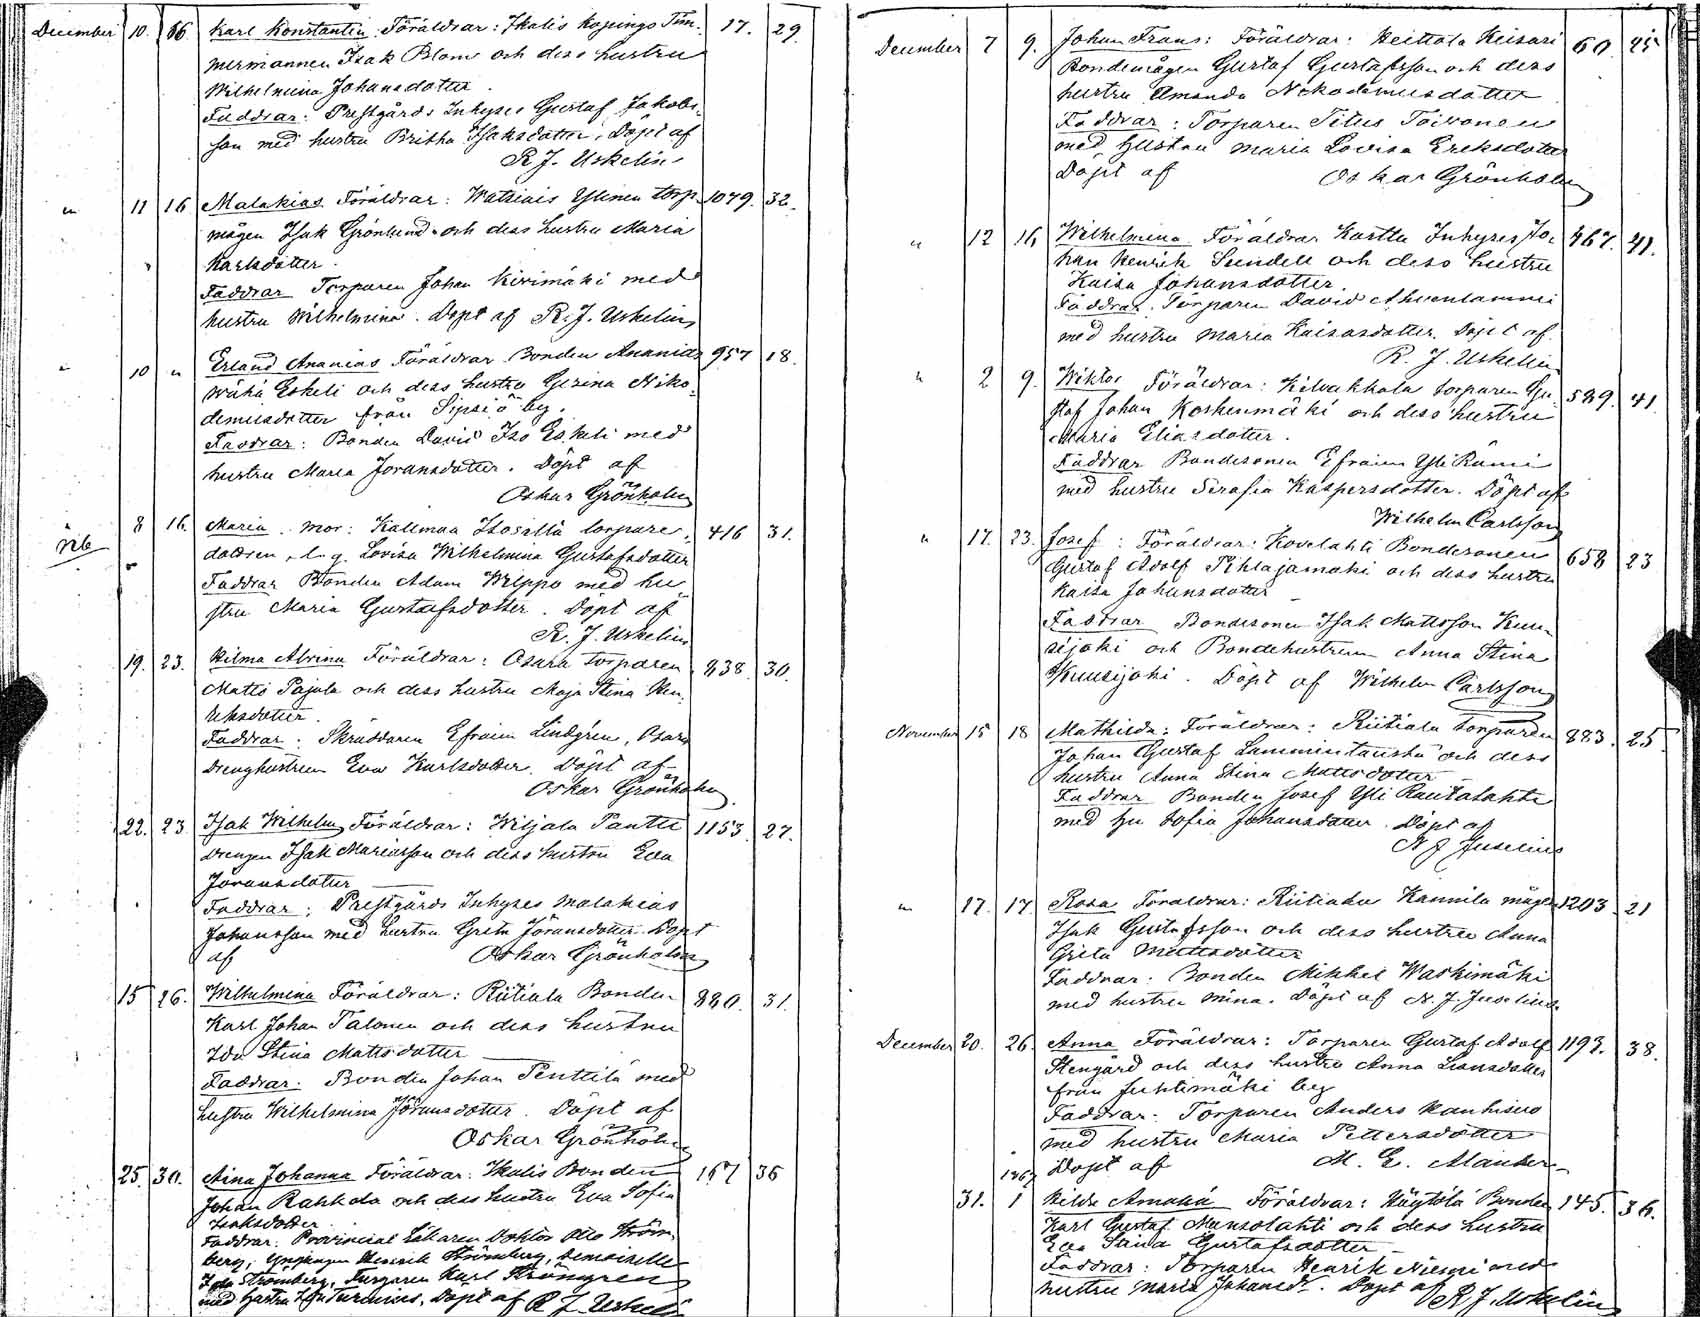 December 10. 16. Karl Konstantin Föräldrar: Ikalis köpings Tim- 17. 29.
mermannen Isak Blom och dess hustru
Wilhelmina Johansdotter.
Faddrar: Prestgårds Inhyses Gustaf Jakobs-
son med hustru Britha Isaksdotter. Döpt af
R J. Uskelin
" 11 16 Malakias Föräldrar: Watsiais Ylinen torp- 1079. 32.
mågen Isak Grönlund och dess hustru Maria
Karlsdotter.
Faddrar Torparen Johan Kivimäki med
hustru Wilhelmina. Döpt af R. J. Uskelin
" 10 " Erland Ananias Föräldrar Bonden Ananias 957 18.
Wähä Eskeli och dess hustru Gerina Niko-
demusdotter från Sipsiö by.
Faddrar: Bonden David Iso Eskeli med
hustru Maria Göransdotter. Döpt af
Oskar Grönholm
8 16. Maria. mor: Kallmaa Isosilta torpare- 416 31.
dottren, Lovisa Wilhelmina Gustafsdotter
Faddrar Bonden Adam Weippo med hu-
stru Maria Gustafsdotter. Döpt af
R. J. Uskelin
19. 23. Hilma Alvina Föräldrar: Osara torparen 838. 30.
Matts Pajala och dess hustru Maja Stina Hen-
riksdotter.
Faddrar. Skräddaren Efraim Lindgren, Osara
Drenghustrun Eva Karlsdotter. Döpt af
Oskar Grönholm
22. 23. Isak Wilhelm Föräldrar: Wiljala Pantti 1153. 27.
Drengen Isak Mariasson och dess hustru Eva
Göransdotter
Faddrar: Prestgårds Inhyses Malakias
Johansson med hustru Greta Göransdotter. Döpt
af Oskar Grönholm
15 26. Wilhelmina Föräldrar: Riitiala Bonden 880. 31.
Karl Johan Talonen och dess hustru
Ida Stina Mattsdotter
Faddrar. Bonden Johan Penttilä med
hustru Wilhelmina Göransdotter. Döpt af
Oskar Grönholm
25. 30. Aina Johanna Föräldrar: Ikalis Bonden 167 36
Johan Rahkola och dess hustru Eva Sofia
Isaksdotter
Faddrar. Provincial Läkaren Doktor Otto Ström-
berg, Ynglingen Henrik Strömberg, Demoiselle
Ida Strömberg, Färgaren Karl Strömgren
med hustru. Döpt af R J. Uskelin
December 7 9. Johan Frans: Föräldrar: Heittola Keisari 60. 25
Bondemågen Gustaf Gustafsson och dess
hustru Amanda Nikodemusdotter
Faddrar: Torparen Titus Toivonen
med Hustru Maria Lovisa Eriksdotter
Döpt af Oskar Grönholm
" 12 16 Wilhelmina Föräldrar Kurttu Inhyses Jo- 467. 41.
han Henrik Sundell och dess hustru
Kaisa Johansdotter.
Faddrar. Torparen David Ahvenlammi
med hustru Maria Kaisasdotter. Döpt af
R. J. Uskelin
" 2 9. Wiktor Föräldrar: Kilvakkala torparen Gu- 589. 41
staf Johan Koskenmäki och dess hustru
Maria Eliasdotter.
Faddrar Bondesonen Efraim Yli Rämi
med hustru Serafia Kaspersdotter. Döpt af
Wilhelm Carlsson
" 17. 23. Josef: Föräldrar: Kovelahti Bondesonen 658 23
Gustaf Adolf Pihlajamäki och dess hustru
Kaisa Johansdotter
Faddrar Bondesonen Isak Mattsson Kuu-
sijoki och Bondehustrun Anna Stina
Kuusijoki. Döpt af Wilhelm Carlsson
November 15 18 Mathilda: Föräldrar: Riitiala torparen 883. 25
Johan Gustaf Lammintausta och dess
hustru Anna Stina Mattsdotter
Faddrar Bonden Josef Yli Rautalahti
med Hu Sofia Johansdotter. Döpt af
N J Juselius
" 17. 17. Rosa Föräldrar: Riitiala Kannila mågen 1203. 21
Isak Gustafsson och dess hustru Anna
Greta Mattsdotter
Faddrar. Bonden Mikkel Waskimäki
med hustru Mina. Döpt af N. J. Juselius.
December 20. 26. Anna Föräldrar: Torparen Gustaf Adolf 1193. 38.
Stengård och dess hustru Anna Liisasdotter
från Juhtimäki by
Faddrar. Torparen Anders Kanhisuo
med hustru Maria Pettersdotter
Döpt af M. E. Alander
1867
31. 1 Hilda Amanda Föräldrar: Höytölä Bonden 145. 36.
Karl Gustaf Mansolahti och dess hustru
Eva Stina Gustafsdotter
Faddrar: Torparen Henrik Niemi med
hustru Maria Johansdr. Döpt af R J. Uskelin